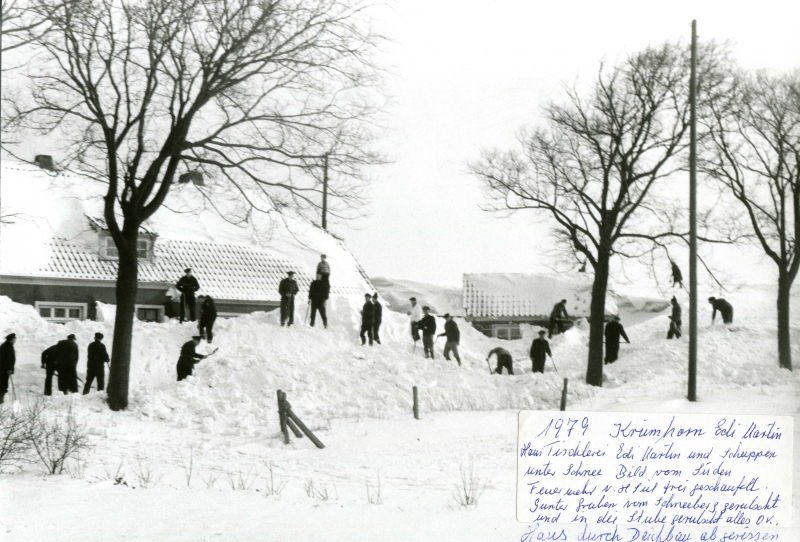 1979 Krumhorn Edi Martin
Haus Tischlerei Edi Martin und Schuppen
unter Schnee Bild vom Süden
Feuerwehr v. H Siel frei geschaufelt.
Gunter Graben vom Schneeberg gerutscht
und in die Stube gerutscht alles OK.
Haus durch Deichbau abgerissen